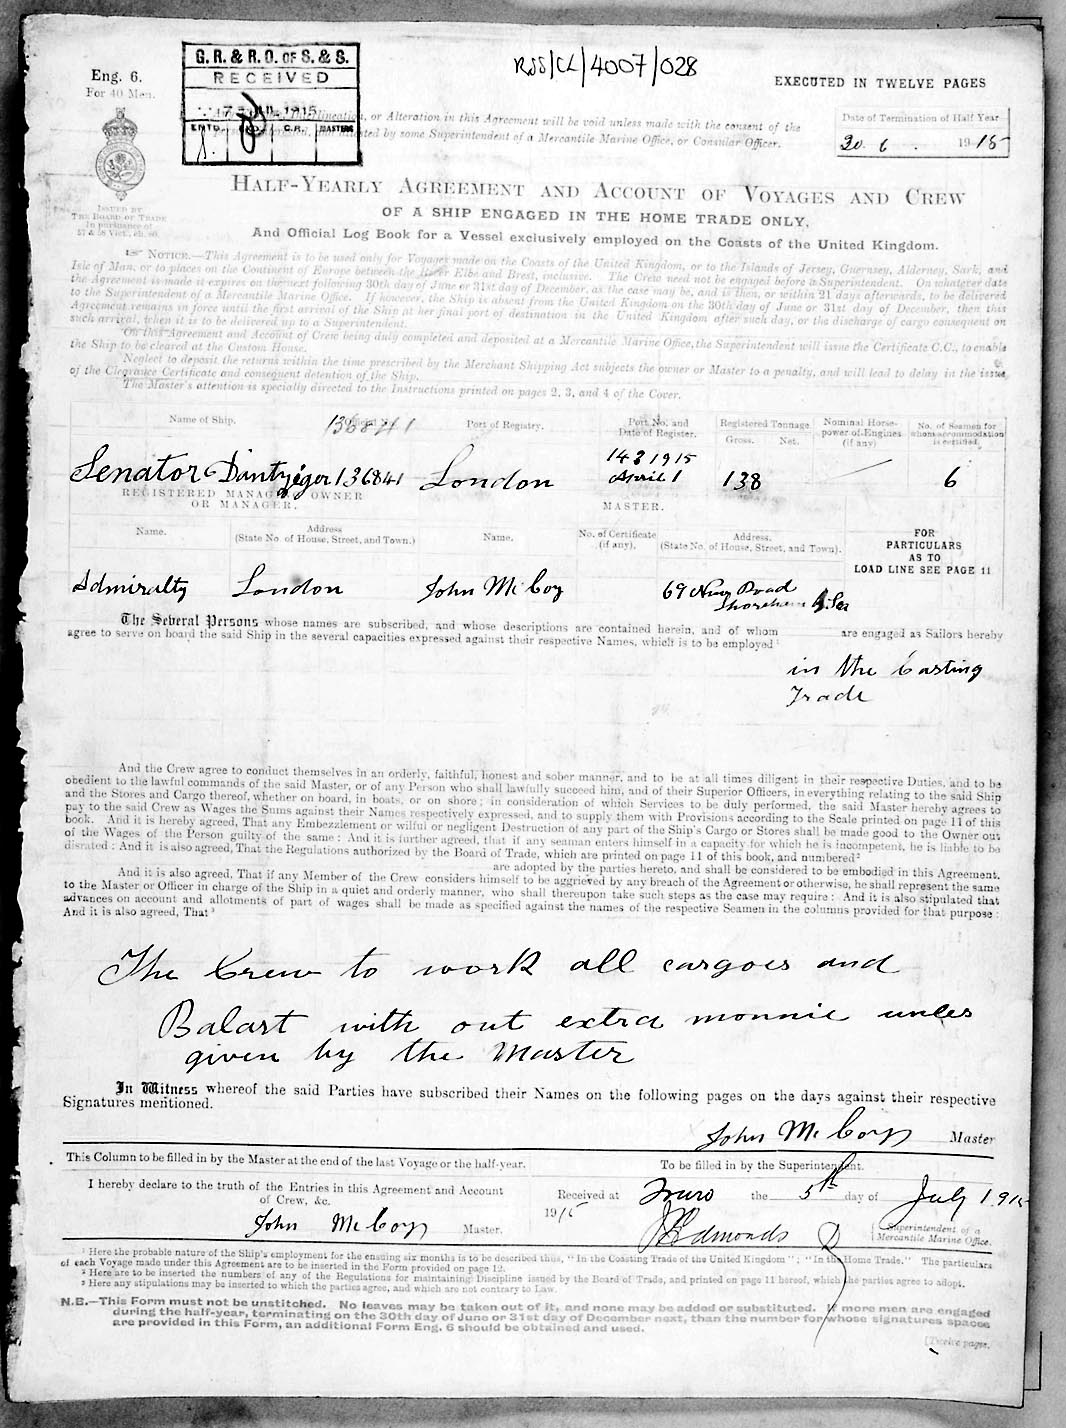 RSS/CL/4007/028
Eng. 6.
For 40 Men.
G. R. & R. O. OF S. & S.
RECEIVED
JUL 1915
ENTD. C.R. MASTERS
EXECUTED IN TWELVE PAGES
or Alteration in this Agreement will be void unless made with the consent of the
by some Superintendent of a Mercantile Marine Office, or Consular Officer.
Date of Termination of Half Year
30. 6. 1915
ISSUED BY
THE BOARD OF TRADE
In pursuance of
57 & 58 Vict., ch. 60.
HALF-YEARLY AGREEMENT AND ACCOUNT OF VOYAGES AND CREW
OF A SHIP ENGAGED IN THE HOME TRADE ONLY,
And Official Log Book for a Vessel exclusively employed on the Coasts of the United Kingdom.
NOTICE.—This Agreement is to be used only for Voyages made on the Coasts of the United Kingdom, or to the Islands of Jersey, Guernsey, Alderney, Sark, and
Isle of Man, or to places on the Continent of Europe between the River Elbe and Brest, inclusive. The Crew need not be engaged before a Superintendent. On whatever date
the Agreement is made it expires on the next following 30th day of June or 31st day of December, as the case may be, and is then, or within 21 days afterwards, to be delivered
to the Superintendent of a Mercantile Marine Office. If however, the Ship is absent from the United Kingdom on the 30th day of June or 31st day of December, then this
Agreement remains in force until the first arrival of the Ship at her final port of destination in the United Kingdom after such day, or the discharge of cargo consequent on
such arrival, when it is to be delivered up to a Superintendent.
On this Agreement and Account of Crew being duly completed and deposited at a Mercantile Marine Office, the Superintendent will issue the Certificate C.C., to enable
the Ship to be cleared at the Custom House.
Neglect to deposit the returns within the time prescribed by the Merchant Shipping Act subjects the owner or Master to a penalty, and will lead to delay in the issue
of the Clearance Certificate and consequent detention of the Ship.
The Master's attention is specially directed to the Instructions printed on pages 2, 3, and 4 of the Cover.
Name of Ship. 136841 Port of Registry. Port No. and Date of Register. Registered Tonnage Gross. Net. Nominal Horse-power of Engines (if any) No. of Seamen for whom accommodation is certified.
Senator 136841 London 143 1915 April 1 138 6
REGISTERED MANAGING OWNER
OR MANAGER.
MASTER.
Name. Address (State No. of House, Street, and Town.) Name. No. of Certificate (if any). Address. (State No. of House, Street, and Town).
FOR
PARTICULARS
AS TO
LOAD LINE SEE PAGE 11
Admiralty London John McCoy 69 New Road Shoreham
The Several Persons whose names are subscribed, and whose descriptions are contained herein, and of whom are engaged as Sailors hereby
agree to serve on board the said Ship in the several capacities expressed against their respective Names, which is to be employed¹
in the Casting
Trade
And the Crew agree to conduct themselves in an orderly, faithful, honest and sober manner, and to be at all times diligent in their respective Duties, and to be
obedient to the lawful commands of the said Master, or of any Person who shall lawfully succeed him, and of their Superior Officers, in everything relating to the said Ship
and the Stores and Cargo thereof, whether on board, in boats, or on shore; in consideration of which Services to be duly performed, the said Master hereby agrees to
pay to the said Crew as Wages the Sums against their Names respectively expressed, and to supply them with Provisions according to the Scale printed on page 11 of this
book. And it is hereby agreed, That any Embezzlement or wilful or negligent Destruction of any part of the Ship's Cargo or Stores shall be made good to the Owner out
of the Wages of the Person guilty of the same: And it is further agreed, that if any seaman enters himself in a capacity for which he is incompetent, he is liable to be
disrated: And it is also agreed, That the Regulations authorized by the Board of Trade, which are printed on page 11 of this book, and numbered²
are adopted by the parties hereto, and shall be considered to be embodied in this Agreement.
And it is also agreed, That if any Member of the Crew considers himself to be aggrieved by any breach of the Agreement or otherwise, he shall represent the same
to the Master or Officer in charge of the Ship in a quiet and orderly manner, who shall thereupon take such steps as the case may require: And it is also stipulated that
advances on account and allotments of part of wages shall be made as specified against the names of the respective Seamen in the columns provided for that purpose:
And it is also agreed, That³
The Crew to work all cargoes and
Balast with out extra monnie unles
given by the Master
In Witness whereof the said Parties have subscribed their Names on the following pages on the days against their respective
Signatures mentioned.
John McCoy Master
This Column to be filled in by the Master at the end of the last Voyage or the half-year.
To be filled in by the Superintendent.
I hereby declare to the truth of the Entries in this Agreement and Account
of Crew, &c.
John McCoy Master.
Received at Truro the 5th day of July 1915
1915
Edmonds
Superintendent of a
Mercantile Marine Office.
¹ Here the probable nature of the Ship's employment for the ensuing six months is to be described thus, "In the Coasting Trade of the United Kingdom"; "In the Home Trade." The particulars
of each Voyage made under this Agreement are to be inserted in the Form provided on page 12.
² Here are to be inserted the numbers of any of the Regulations for maintaining Discipline issued by the Board of Trade, and printed on page 11 hereof, which the parties agree to adopt.
³ Here any stipulations may be inserted to which the parties agree, and which are not contrary to Law.
N.B.—This Form must not be unstitched. No leaves may be taken out of it, and none may be added or substituted. If more men are engaged
during the half-year, terminating on the 30th day of June or 31st day of December next, than the number for whose signatures spaces
are provided in this Form, an additional Form Eng. 6 should be obtained and used.
[Twelve pages.